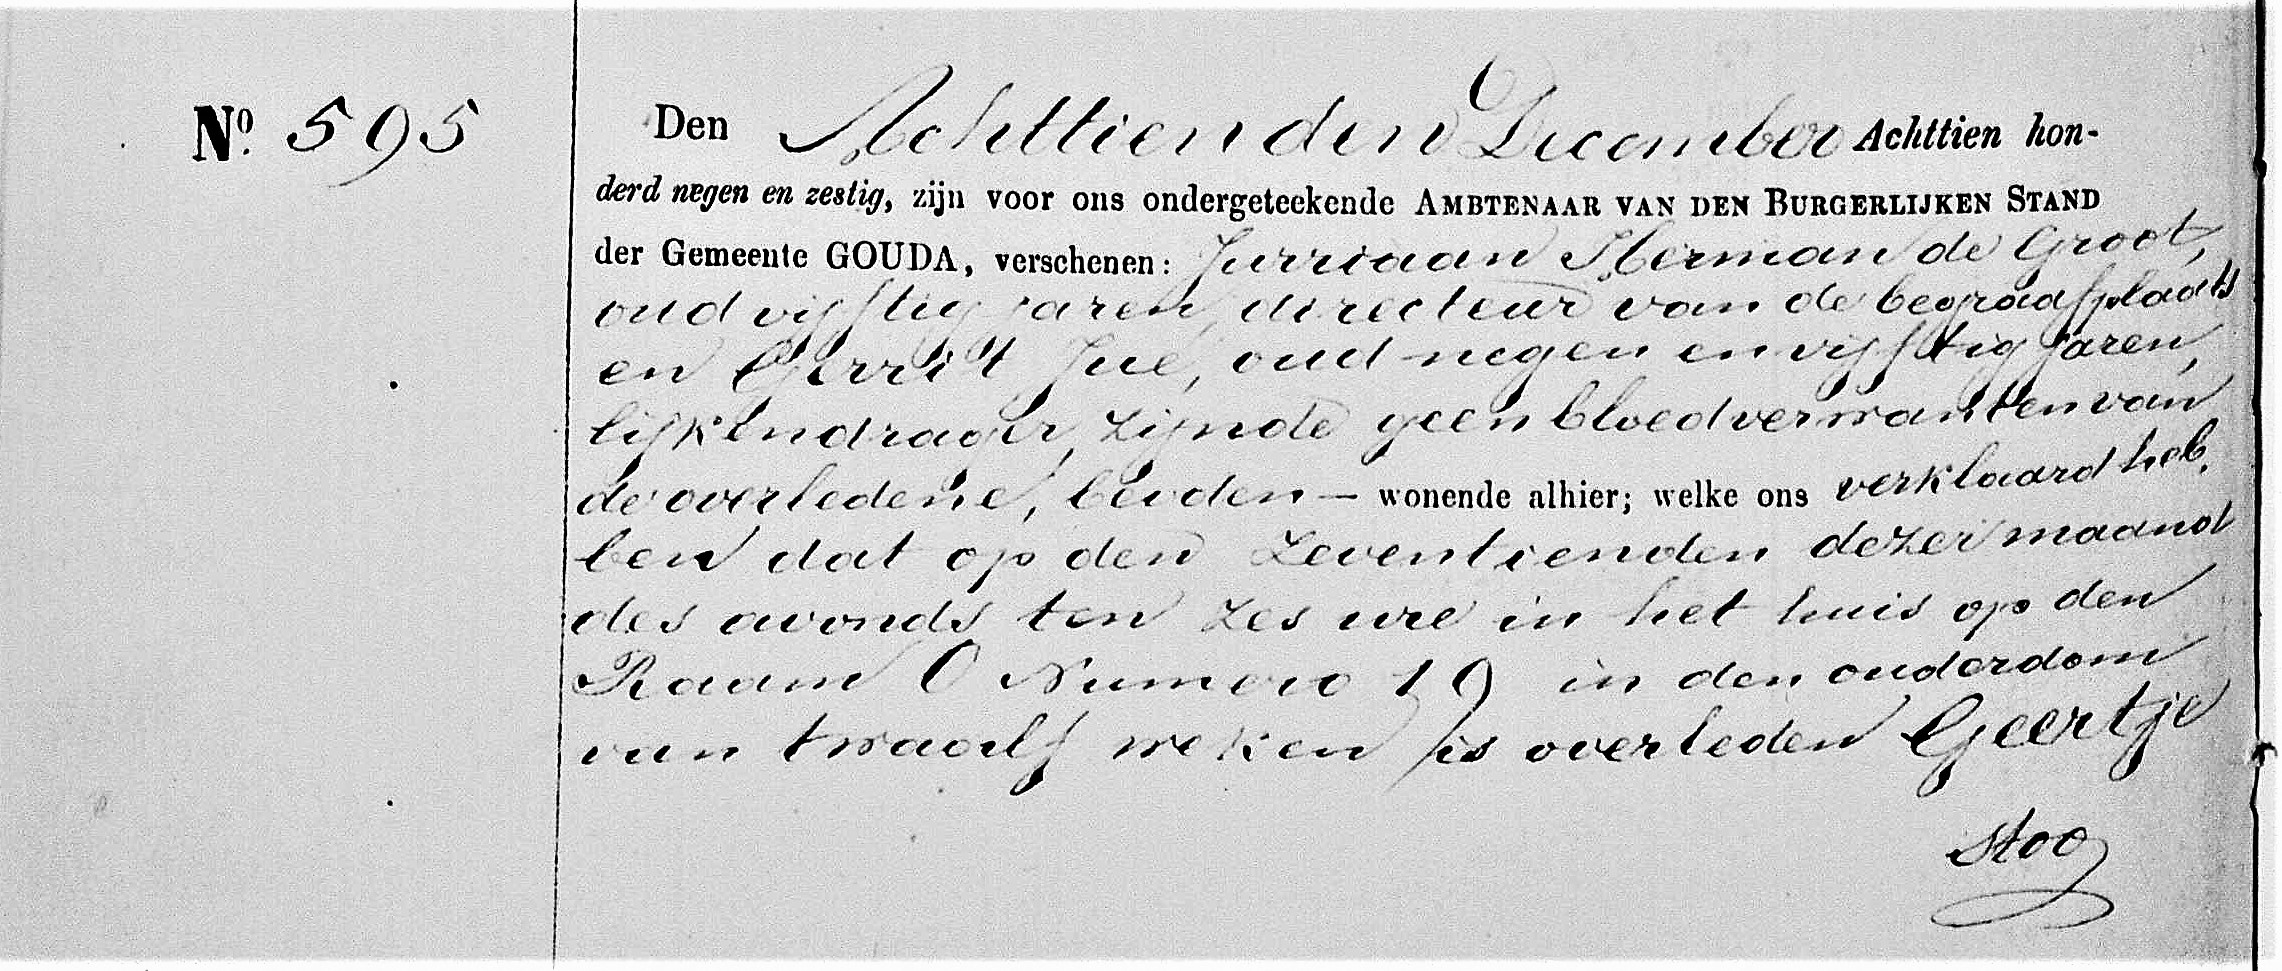 Nº. 595
Den Achttienden December Achttien hon-
derd negen en zestig, zijn voor ons ondergeteekende AMBTENAAR VAN DEN BURGERLIJKEN STAND
der Gemeente GOUDA, verschenen: Jurriaan Herman de Groot,
oud vijftig jaren, directeur van de begraafplaats
en Gerrit Jué, oud negen en vijftig jaren,
lijkendrager, zijnde geen bloedverwanten van
de overledene, beiden — wonende alhier; welke ons verklaard heb.
ben dat op den zeventienden dezer maand
des avonds ten zes ure in het huis op den
Raam O Numero 19 in den ouderdom
van twaalf weken is overleden Geertje
Stoo